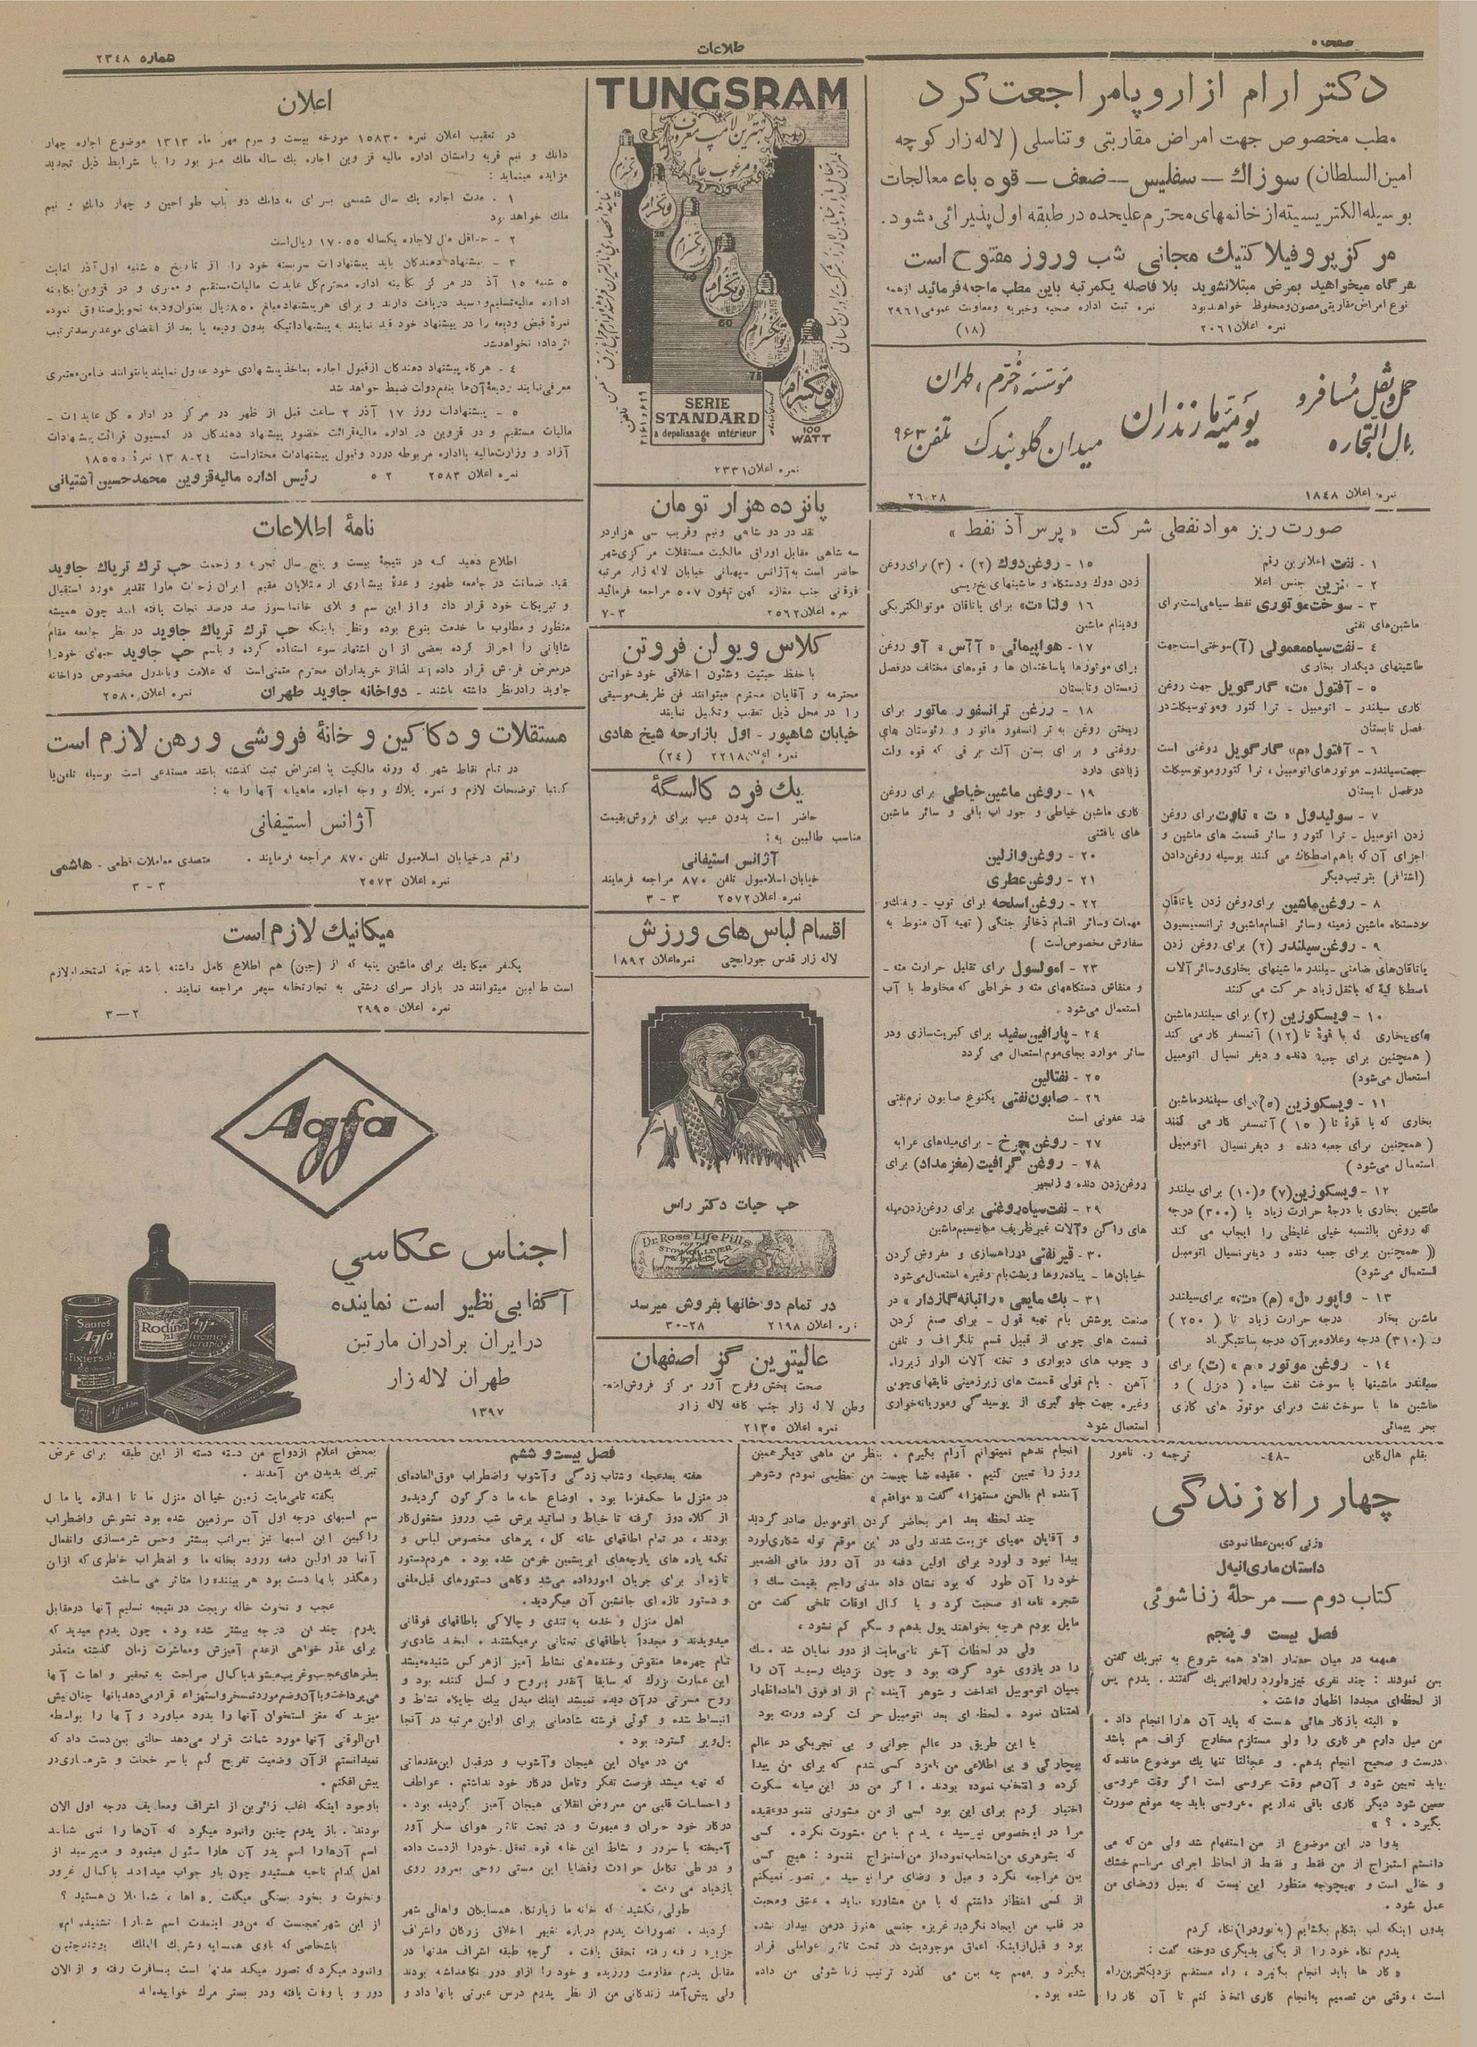 اطلاعات
شماره ۲۳۴۸
دکتر ارام از اروپا مراجعت کرد
مطب مخصوص جهت امراض مقاربتی و تناسلی ( لاله زار کوچه
امین السلطان) سوزاك – سفلیس – ضعف – قوه باء معالجات
بوسیله الکتریسیته از خانمهای محترم علیحده در طبقه اول پذیرائی میشود.
مرکز پروفیلاکتیك مجانی شب و روز مفتوح است
هرگاه میخواهید بمرض مبتلا نشوید بلا فاصله یکمرتبه باین مطب مراجعه فرمائید از همه
نوع امراض مقاربتی مصون و محفوظ خواهید بود نمره ثبت اداره صحیه و خیریه و معاونت عمومی ۲۹۶۱
نمره اعلان ۲۰۶۱ (۱۸)
حمل و نقل مسافر و
مال التجاره
یومیه مازندران
موسسه محترم طهران
میدان گلوبندك تلفن ۹۶۳
نمره اعلان ۱۸۴۸
۲۶-۲۸
صورت ریز مواد نفطی شرکت « پرس آذ نفط »
۱ - نفت اعلا ترین رقم
۲ - بنزین جنس اعلا
۳ - سوخت موتوری نفط سیاهی است برای
ماشین های نفتی
۴ - نفت سیاه معمولی (آ) سوختی است جهت
ماشینهای دیگدار بخاری
۵ - آفتول «ت» گارگویل جهت روغن
کاری سیلندر - اتومبیل - تراکتور و موتوسیکلت در
فصل تابستان
۶ - آفتول «م» گارگویل روغنی است
جهت سیلندر - موتورهای اتومبیل، تراکتور و موتوسیکلات
در فصل تابستان
۷ - سولیدول « ت » تاوت برای روغن
زدن اتومبیل - تراکتور و سائر قسمت های ماشین و
اجزای آن که باهم اصطکاك می کنند بوسیله روغن دادن
(اشتافر) بترتیب دیگر
۸ - روغن ماشین برای روغن زدن یاتاقان
و دستگاه ماشین زمینه و سائر اقسام ماشین و ترانسمیسیون
۹ - روغن سیلندر (۲) برای روغن زدن
اصطکاکیه که با نقل زیاد حرکت می کنند
۱۰ - ویسکوزین (۲) برای سیلندر ماشین
های بخاری که با قوة تا (۱۲) آتمسفر کار می کند
( همچنین برای جعبه دنده و دیفرنسیال اتومبیل
استعمال می شود)
۱۱ - ویسکوزین (۵) برای سیلندر ماشین
بخاری که با قوة تا ( ۱۵ ) آتمسفر کار می کنند
( همچنین برای جعبه دنده و دیفرنسیال اتومبیل
استعمال می شود )
۱۲ - ویسکوزین (۷) و (۱۰) برای سیلندر
ماشین بخاری با درجۀ حرارت زیاد با (۳۰۰) درجه
که روغن بالنسبه خیلی غلیظی را ایجاب می کند
(( همچنین برای جعبه دنده و دیفرنسیال اتومبیل
استعمال می شود)
ماشین بخار درجه حرارت زیاد تا ( ۲۵۰ )
و (۳۱۰) درجه و علاوه بر آن درجه سانتیگراد
۱۴ - روغن موتور «م » (ت) برای
سیلندر ماشینها با سوخت نفت سیاه ( دیزل ) و
ماشین ها با سوخت نفت و برای موتور های کاری
بحر پیمائی
۱۵ - روغن دوك (۲) ، (۳) برای روغن
زدن دوك و دستگاه و ماشینهای نخ ریسی
۱۶ - ولتا «ت» برای یاتاقان موتور الکتریکی
و دینام ماشین
۱۷ - هواپیمائی « آآس » آو روغن
برای موتورها یا ساختمان ها و قوه های مختلف در فصل
زمستان و تابستان
۱۸ - روغن ترانسفور ماتور برای
ریختن روغن به ترانسفور ماتور و رئوستان های
روغنی و برای بستن آلت برقی که قوه ولت
زیادی دارد
۱۹ - روغن ماشین خیاطی برای روغن
کاری ماشین خیاطی و جوراب بافی و سائر ماشین
های بافتنی
۲۰ - روغن وازلین
۲۱ - روغن عطری
۲۲ - روغن اسلحه برای توپ - و تفنك و
مهمات و سائر اقسام ذخائر جنگی ( تهیه آن منوط به
سفارش مخصوص است )
۲۳ - امولسول برای تقلیل حرارت مته -
و منقاش دستگاههای مته و خراطی که مخلوط با آب
استعمال می شود
۲۴ - پارافین سفید برای کبریت سازی و در
سائر موارد بجای موم استعمال می گردد
۲۵ - نفتالین
۲۶ - صابون نفتی یکنوع صابون نرم نفتی
ضد عفونی است
۲۷ - روغن چرخ - برای میله های عرابه
۲۸ - روغن گرافیت (مغز مداد) برای
روغن زدن دنده و زنجیر
۲۹ - نفت سیاه روغنی برای روغن زدن میله
های واگن و آلات غیر ظریف مکانیسم ماشین
۳۰ - قیر نفتی در راهسازی و مفروش کردن
خیابان ها - پیاده روها و پشت بام وغیره استعمال می شود
صنعت پوشش بام تهیه قول - برای صمغ کردن
قسمت های چوبی از قبیل قسم تلگراف و تلفن
و چوب های دیواری و تخته آلات الوار زیر راه
آهن - بام قولی قسمت های زیرزمینی قایقهای چوبی
وغیره جهت جلوگیری از پوسیدگی و موریانه خواری
استعمال شود
TUNGSRAM
بهترین لامپ معروف
و مرغوب عالم
تونگسرام
15
25
40
60
75
100
WATT
SERIE
STANDARD
a depolissage intérieur
نمره اعلان ۲۳۳۱
پانزده هزار تومان
نقد در دو شاهی ونیم وقریب سی هزار در
سه شاهی مقابل اوراق مالکیت مستقلات مرکزی شهر
حاضر است به آژانس میهمانی خیابان لاله زار مرتبه
فوقانی جنب مغازه کهن تلفون ۵۰۷ مراجعه فرمائید
نمره اعلان ۲۵۶۲ ۷-۳
کلاس ویولن فروتن
با حفظ حیثیت و شئون اخلاقی خود خواتین
محترمه و آقایان محترم میتوانند فن ظریف موسیقی
را در محل ذیل تعقیب و تکمیل نمایند
خیابان شاهپور - اول بازارچه شیخ هادی
نمره اعلان ۲۲۱۸ (۲۴)
یك فرد کالسگۀ
حاضر است بدون عیب برای فروش بقیمت
مناسب طالبین به :
آژانس استیفانی
خیابان اسلامبول تلفن ۸۷۰ مراجعه فرمایند
نمره اعلان ۲۵۷۲ ۳ - ۳
اقسام لباس های ورزش
لاله زار قدس جورابچی نمره اعلان ۱۸۹۲
حب حیات دکتر راس
Dr. Ross Life Pills
FOR THE
STOMACH LIVER
در تمام دواخانها بفروش میرسد
نمره اعلان ۲۱۹۸ ۳۰-۲۸
عالیترین گز اصفهان
صحت بخش و فرح آور مرکز فروش
وطن لاله زار جنب کافه لاله زار
نمره اعلان ۲۱۳۵
اعلان
در تعقیب اعلان نمره ۱۵۸۳۰ مورخه بیست و سوم مهر ماه ۱۳۱۳ موضوع اجاره چهار
دانك و نیم قریه رامشان اداره مالیه قزوین اجاره یك ساله ملك مزبور را با شرایط ذیل تجدید
مزایده مینماید :
۱ - مدت اجاره یك سال شمسی برای سه دانك دو باب طواحین و چهار دانك و نیم
ملك خواهد بود
۲ - حداقل مال الاجاره یکساله ۱۷۰۵۵ ریال است
۳ - پیشنهاد دهندگان باید پیشنهادات سربسته خود را از تاریخ ۵ شنبه اول آذر لغایت
نمرۀ قبض ودیعه را در پیشنهاد خود قید نمایند به پیشنهاداتیکه بدون ودیعه یا بعد از انقضای موعد برسد ترتیب
اثر داده نخواهد شد
۴ - هرگاه پیشنهاد دهندگان از قبول اجاره بماخذ پیشنهادی خود عدول نمایند یا نتوانند ضامن معتبری
معرفی نمایند ودیعه آن ها بنفع دولت ضبط خواهد شد
۵ - پیشنهادات روز ۱۷ آذر ۲ ساعت قبل از ظهر در مرکز در اداره کل عایدات -
مالیات مستقیم و در قزوین در اداره مالیه قرائت حضور پیشنهاد دهندگان در کمسیون قرائت پیشنهادات
آزاد و وزارت مالیه یا اداره مربوطه در رد و قبول پیشنهادات مختار است ۲۴-۸-۱۳ نمره ۱۸۵۵۰
نمره اعلان ۲۵۸۳ ۲-۵ رئیس اداره مالیه قزوین محمد حسین آشتیانی
نامۀ اطلاعات
اطلاع دهید که در نتیجۀ بیست و پنج سال تجربه و زحمت حب ترك تریاك جاوید
و تبریکات خود قرار داد و از این سم و بلای خانمانسوز صد درصد نجات یافته اند چون همیشه
منظور و مطلوب ما خدمت بنوع بوده ونظر باینکه حب ترك تریاك جاوید در نظر جامعه مقام
شایانی را احراز کرده بعضی از این اشتهار سوء استفاده کرده و باسم حب جاوید حبهای خود را
درمعرض فروش قرار داده اند لذا از خریداران محترم متمنی است که علامت و باندرل مخصوص دواخانه
جاوید را در نظر داشته باشند - دواخانه جاوید طهران نمره اعلان ۲۵۸۰
مستقلات و دکاکین و خانۀ فروشی و رهن لازم است
در تمام نقاط شهر که ورقه مالکیت یا اعتراض ثبت گذشته باشد مستدعی است بوسیله تلفن یا
کتبا توضیحات لازم و نمره پلاك و وجه اجاره ماهیانه آنها را به :
آژانس استیفانی
واقع در خیابان اسلامبول تلفن ۸۷۰ مراجعه فرمایند . متصدی معاملات قطعی - هاشمی
نمره اعلان ۲۵۷۳ ۳ - ۳
میکانیك لازم است
یکنفر میکانیك برای ماشین پنبه که از (جین) هم اطلاع کامل داشته باشد جهة استخدام لازم
است طالبین میتوانند در بازار سرای رشتی به تجارتخانه سپهر مراجعه نمایند .
نمره اعلان ۲۹۹۵ ۲—۳
Agfa
اجناس عکاسي
آگفا بی نظیر است نماینده
در ایران برادران مارتین
طهران لاله زار
۱۳۹۷
Saures
Agfa
Fixiersalz
Agfa
Rodinal
Agfa
Agfa Film
بقلم هال کاین
-۴۸-
ترجمه ر. نامور
چهار راه زندگی
داستان ماری انیه ل
کتاب دوم – مرحلۀ زناشوئی
فصل بیست و پنجم
همهمه در میان حضار افتاد همه شروع به تبریك گفتن
بمن نمودند : چند نفری نیز بلورد راه تبریك گفتند . پدرم پس
از لحظه ای مجددا اظهار داشت .
« البته باز کار هائی هست که باید آن ها را انجام داد .
من میل دارم هر کاری را ولو مستلزم مخارج گزاف هم باشد
درست و صحیح انجام بدهم . و عجالتا تنها یك موضوع مانده که
باید تعیین شود و آن هم وقت عروسی است اگر وقت عروسی
معین شود دیگر کاری باقی نداریم . عروسی باید چه موقع صورت
بگیرد . ؟ »
بدوا در این موضوع از من استفهام شد ولی من که می
دانستم استمزاج از من فقط و فقط از لحاظ اجرای مراسم خشك
و خالی است و بهیچوجه منظور این نیست که بمیل و رضای من
عمل شود .
بدون اینکه لب بتکلم بگشایم (به لورد را) نگاه کردم
پدرم نگاه خود را از یکی بدیگری دوخته گفت :
« کار ها باید انجام بگیرد ، راه مستقیم نزدیکترین راه
است ، وقتی من تصمیم به انجام کاری اتخذ کنم تا آن کار را
انجام ندهم نمیتوانم آرام بگیرم . بنظر من ماهی دیگر همین
روز را تعیین کنیم . عقیده شما چیست من تعظیمی نمودم و شوهر
آینده ام بالحن مستهزانه گفت « موافقم »
چند لحظه بعد امر بحاضر کردن اتوموبیل صادر گردید
و آقایان مهیای عزیمت شدند ولی در این موقع توله شکاری لورد
پیدا نبود و لورد برای اولین دفعه در آن روز مافی الضمیر
خود را آن طور که بود نشان داد مدتی راجع بقیمت سك و
شجره نامه او صحبت کرد و با کمال اوقات تلخی گفت من
مایل بودم هرچه بخواهند پول بدهم و سگم گم نشود ،
را در بازوی خود گرفته بود و چون نزدیك رسید آن را
بمیان اتوموبیل انداخت و شوهر آینده ام از او فوق العاده اظهار
امتنان نمود . لحظه ای بعد اتومبیل حرکت کرده و رفته بود
با این طریق در عالم جوانی و بی تجربگی در عالم
بیچارگی و بی اطلاعی من نامزد کسی شدم که برای من پیدا
کرده و انتخاب نموده بودند . اگر من در این میانه سکوت
اختیار کردم برای این بود کسی از من مشورتی ننمود و عقیده
مرا در اینخصوص نپرسید ، پدرم با من مشورت نکرد . کسی
که بشوهری من انتخاب نموده از من استمزاج ننمود : هیچ کسی
بمن مراجعه نکرد و میل و رضای مرا نپرسید . تصور نمیکنم
از کسی انتظار داشتم که با من مشاوره نماید . عشق و محبت
در قلب من ایجاد نگردید غریزه جنسی هنوز در من بیدار نشده
بود و قبل از اینکه اعماق موجودیت در تحت تاثیر عواملی قرار
بگیرد و بفهمم چه بمن می گذرد ترتیب زناشوئی من داده
شده بود .
فصل بیست و ششم
هفته بعد عجله و شتاب زدگی و آشوب و اضطراب فوق العاده ای
در منزل ما حکمفرما بود . اوضاع خانه ما دگرگون گردیده و
از کلاه دوز گرفته تا خیاط و اساتید برش شب و روز مشغول کار
بودند ، در تمام اطاقهای خانه گل ، پرهای مخصوص لباس و
تکه پاره های پارچه های ابریشمین خرمن شده بود . هر دم دستور
تازه ای برای جریان امور داده می شد و گاهی دستورهای قبل ملغی
و دستور تازه ای جانشین آن میگردید .
اهل منزل و خدمه به تندی و چالاکی باطاقهای فوقانی
میدویدند و مجدداً باطاقهای تحتانی برمیگشتند . لبخند شادی بر
تمام چهره ها منقوش و خنده های نشاط آمیز از هر کس شنیده میشد
این عمارت بزرك که سابقا آنقدر بیروح و کسل کننده بود و
روح مسرتی در آن دیده نمیشد اینك مبدل بیك جایگاه نشاط و
انبساط شده و گوئی فرشته شادمانی برای اولین مرتبه در آنجا
بال و پر گسترده بود .
من در میان این هیجان و آشوب و در قبال این مقدماتی
که تهیه میشد فرصت تفکر و تامل در کار خود نداشتم . عواطف
و احساسات قلبی من معروض انقلابی هیجان آمیز گردیده بود .
در کار خود حیران و مبهوت و در تحت تاثیر هوای سکر آور
آمیخته با سرور و نشاط این خانه قوه تعقل خود را از دست داده
و در طی تکامل حوادث وقضایا این مستی روحی بمرور روی
بازدیاد می رفت .
طولی نکشید که خانه ما زیارتگاه همسایگان و اهالی شهر
گردید . تصورات پدرم درباره تغییر اخلاق بزرگان و اشراف
جزیره رفته رفته تحقق یافت . گرچه طبقه اشراف مدتها در
مقابل پدرم مقاومت ورزیده و خود را از او دور نگاهداشته بودند
ولی پیش آمد زندگانی من از نظر پدرم درس عبرتی بآنها داد و
بمحض اعلام ازدواج من دسته دسته از این طبقه برای عرض
تبریك بدیدن من آمدند .
سم اسبهای درجه اول آن سرزمین شده بود تشویش و اضطراب
راکبین این اسبها نیز بمراتب بیشتر وحس شرمسازی و انفعال
آنها در اولین دفعه ورود بخانه ما و اضطراب خاطری که از این
رهگذر بآنها دست بود هر بیننده را متاثر می ساخت
عجب و نخوت خاله بریجت در نتیجه تسلیم آنها در مقابل
پدرم چندان درجه بیشتر شده بود . چون پدرم میدید که
برای عذر خواهی از عدم آمیزش و معاشرت زمان گذشته متعذر
بعذرهای عجیب و غریب میشوند با کمال صراحت به تحقیر و اهانت آنها
میزند که مغز استخوان آنها را بدرد میاورد و آنها را بواسطه
ابن الوقتی آنها مورد شماتت قرار می دهد حالتی بمن دست داد که
نمیدانستم از آن وضعیت تفریح کنم یا سر خجلت و شرمساری در
پیش افکنم .
باوجود اینکه اغلب زائرین از اشراف و معاریف درجه اول الان
بودند . باز پدرم چنین وانمود میکرد که آن ها را نمی شناسد
اسم آن ها را اسم پدر آن ها را سئول مینمود و میپرسید از
اهل کدام ناحیه هستید و چون باو جواب میدادند باکمال غرور
ونخوت و بخود بستگی میگفت « اها ، شما فلان هستید ؟
از این شهر ؟ عجبست که من در اینمدت اسم شما را نشنیده ام »
باشخاصی که باوی همسایه و شریك الملك بودند چنین
وانمود میکرد که تصور میکند مدتها است بمسافرت رفته و از الان
دور و یا وفات یافته و در بستر مرك خوابیده اند